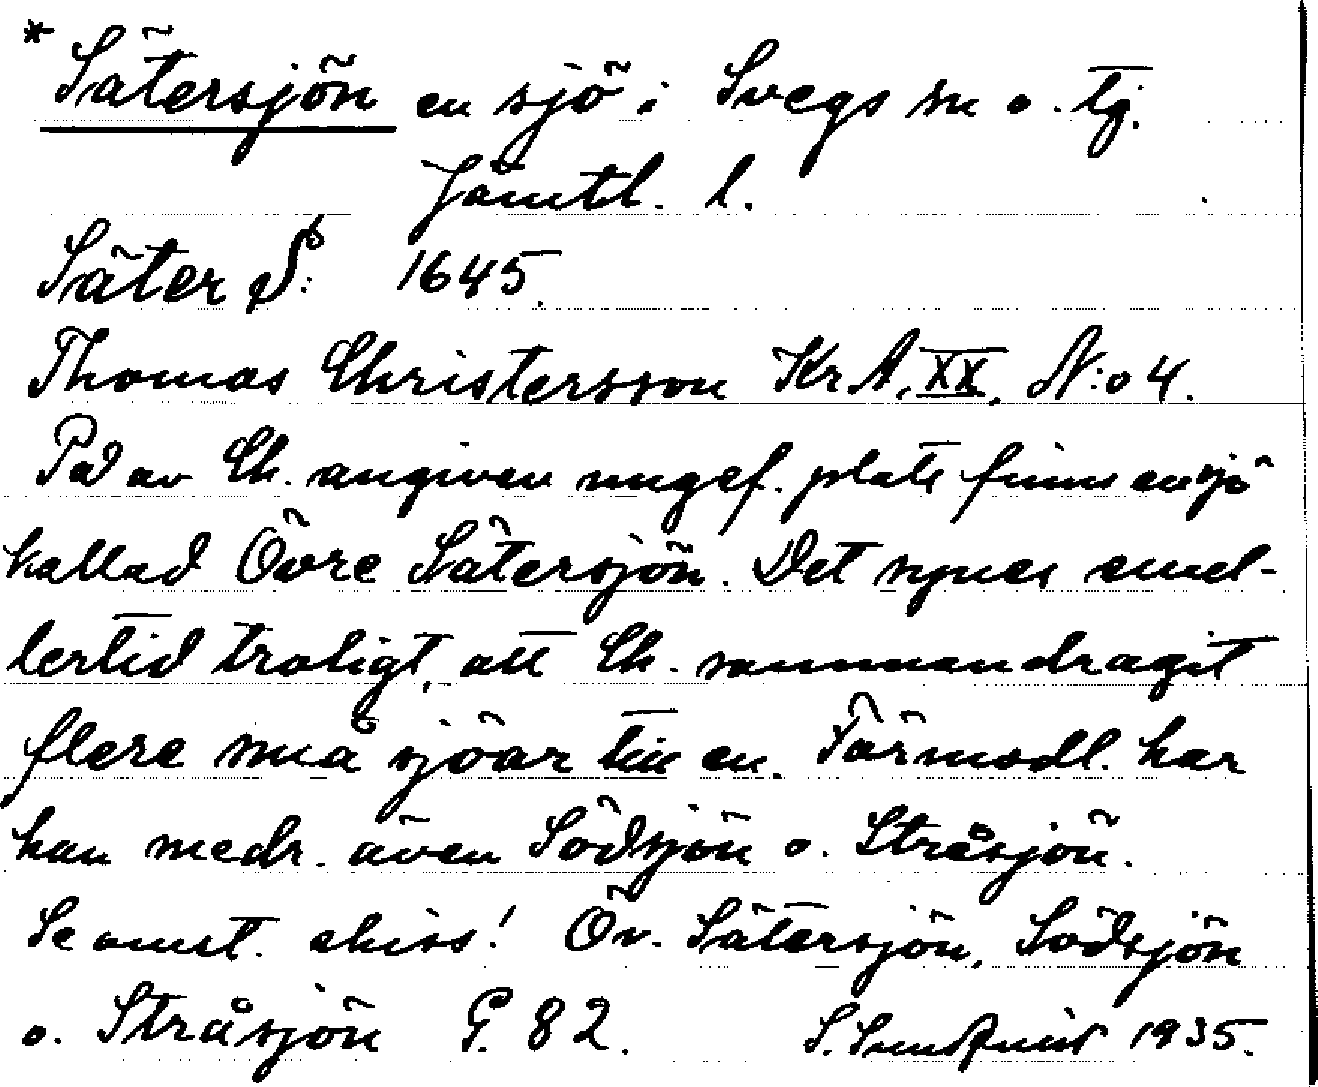 * Sätersjön en sjö i Svegs sn o. tg.
Jämtl. l.
Säter S: 1645.
Thomas Christersson KrA, XX, N:o 4.
På av Ch. angiven ungef. plats finns en sjö
kallad Övre Sätersjön. Det synes emel-
lertid troligt, att Ch. sammandragit
flere små sjöar till en. Förmodl. har
han medr. även Södsjön o. Stråsjön.
Se omst. skiss! Öv. Sätersjön, Södsjön
o. Stråsjön G. 82. S. Sundquist 1935.